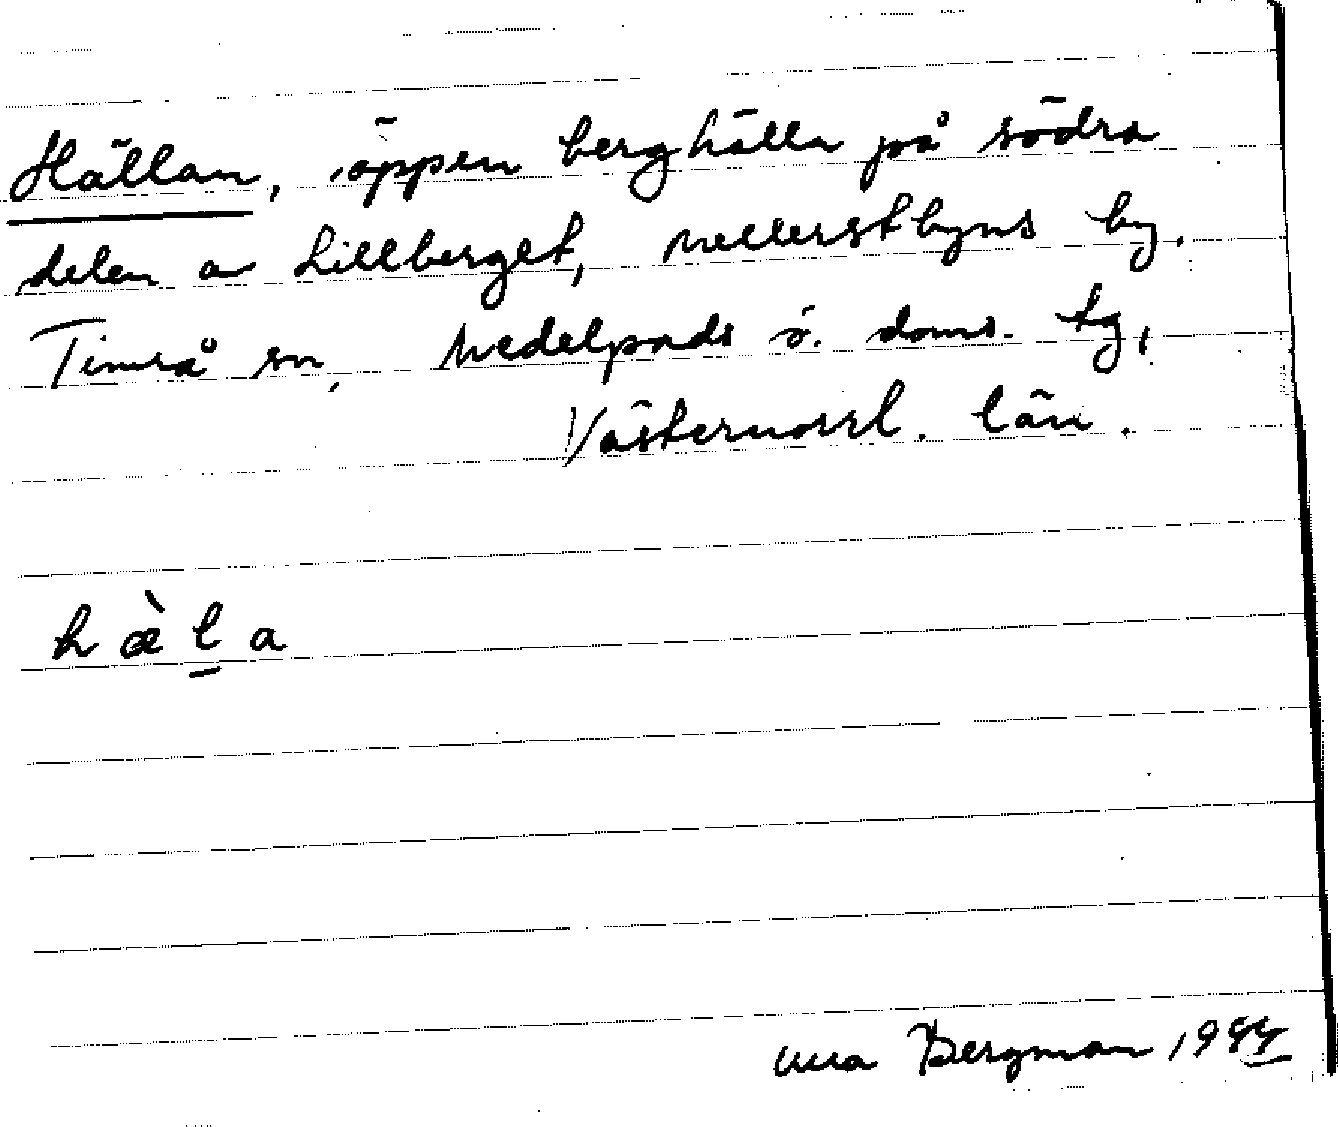 Hällan, öppen berghälla på södra
delen av Lillberget, Mellerstbyns by,
Timrå sn, Medelpads ö. doms. tg,
Västernorrl. län.
hæ̀l̲a
Bergman 1944